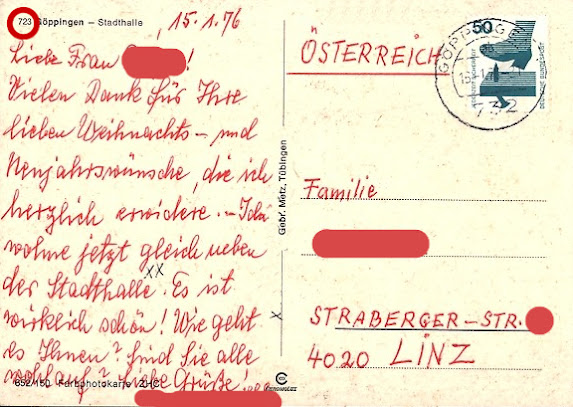 723 Göppingen – Stadthalle
, 15.1.76
Liebe Frau !
Vielen Dank für Ihre
lieben Weihnachts- und
Neujahrswünsche, die ich
herzlich erwidere. – Ich
wohne jetzt gleich neben
der Stadthalle. Es ist
xx
wirklich schön! Wie geht
es Ihnen? Sind Sie alle
wohlauf? Liebe Grüße!
652/150 Farbphotokarte ZHC
Gebr. Metz, Tübingen
x
ÖSTERREICH
GÖPPINGEN
732
50
Familie
STRABERGER-STR.
4020 LINZ